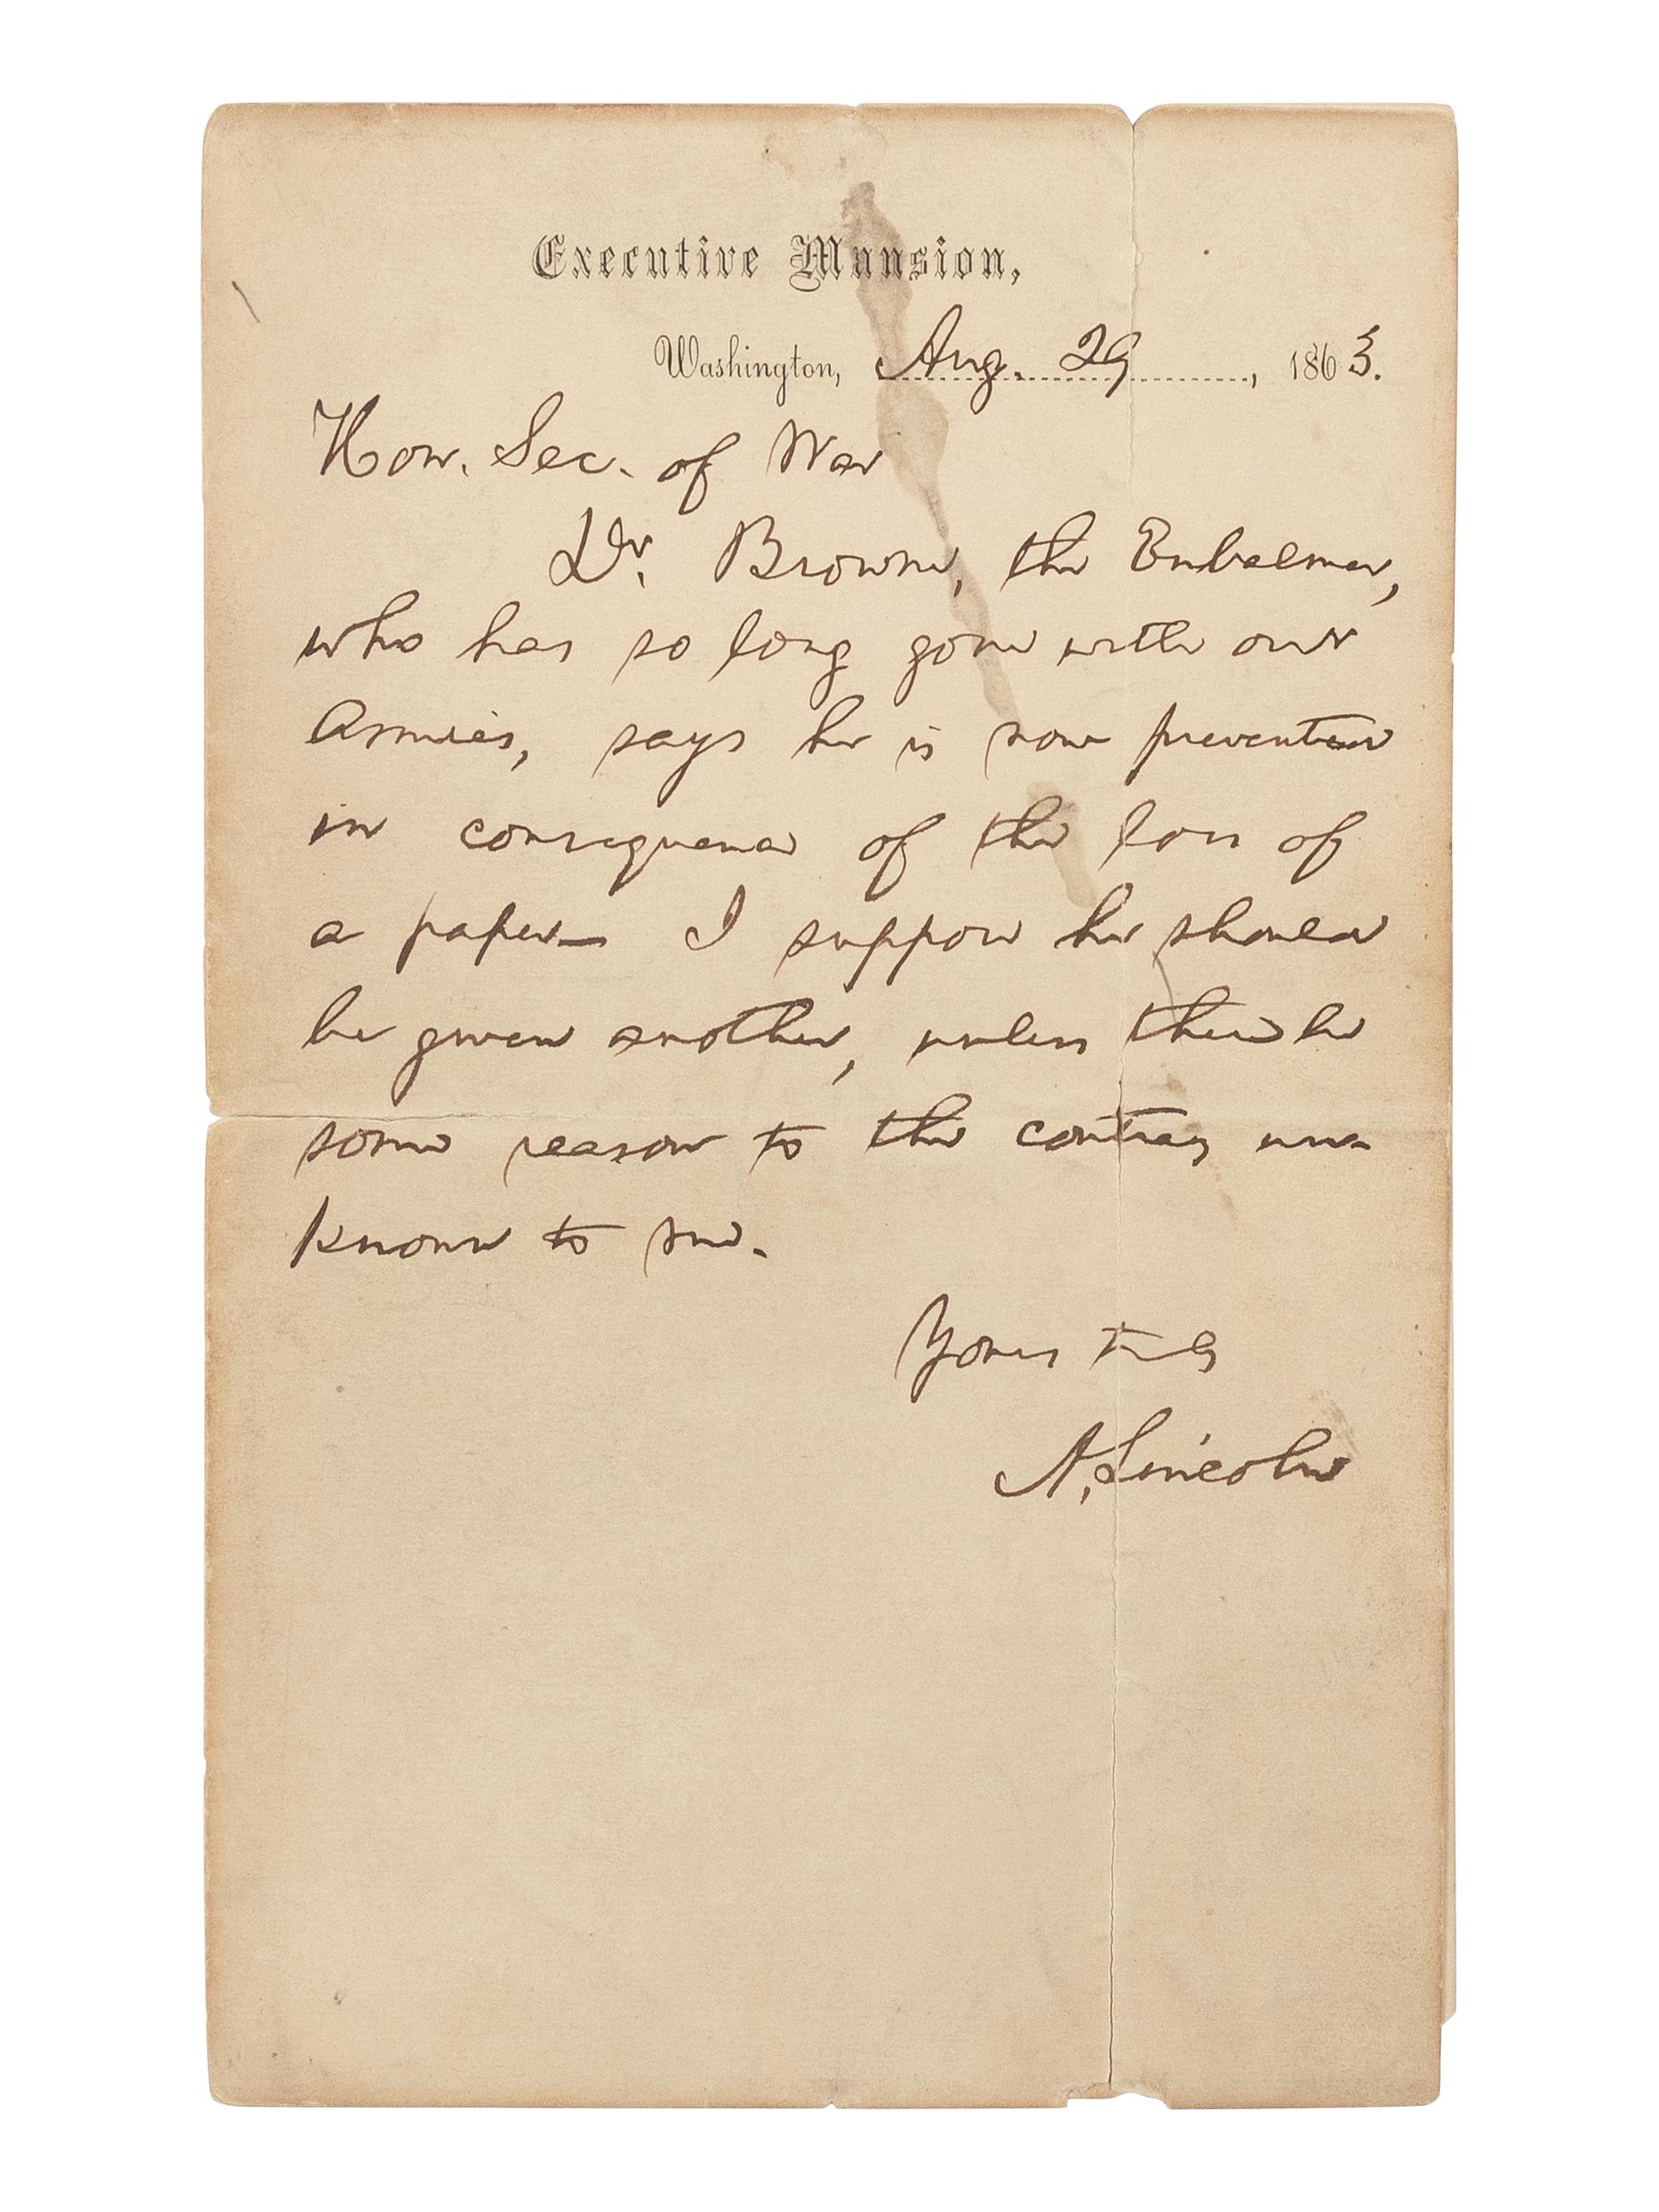 Executive Mansion,
Washington, Aug. 29, 1863.
Hon. Sec. of War
Dr. Brown, the Embalmer,
who has so long gone with our
Armies, says he is now prevented
in consequence of the loss of
a paper— I suppose he should
be given another, unless there be
some reason to the contrary un-
known to me.
Yours truly
A. Lincoln